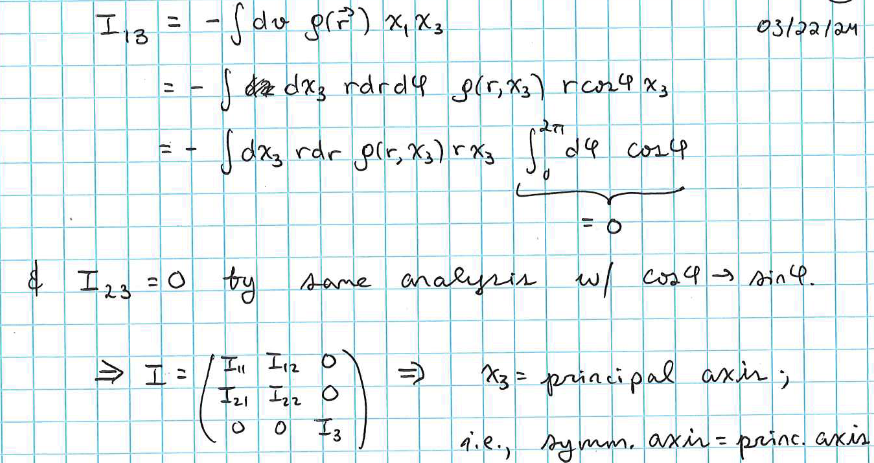 I₁₃ = - ∫ dv ρ(r⃗) x₁ x₃
03/22/24
= - ∫ dx₃ r dr dφ ρ(r, x₃) r cos φ x₃
= - ∫ dx₃ r dr ρ(r, x₃) r x₃ ∫₀^2π dφ cos φ
= 0
& I₂₃ = 0 by same analysis w/ cos φ → sin φ.
⇒ I = ( I₁₁ I₁₂ 0 ⇒ x₃ = principal axis ;
I₂₁ I₂₂ 0
0 0 I₃ ) i.e., symm. axis = princ. axis